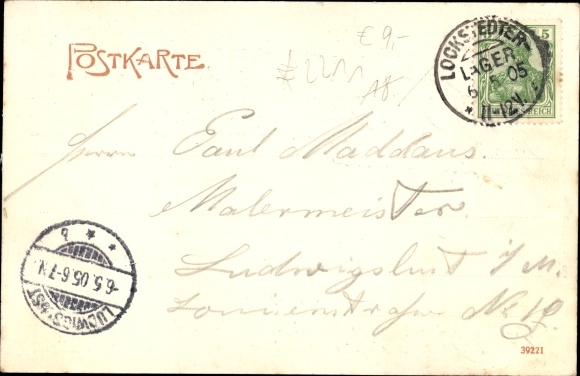 POSTKARTE
€ 9,-
LOCKSTEDTER
LAGER
6 5 05
* 11-12V
5
REICH
Herrn Paul Maddaus.
Malermeister.
Ludwigslust i/M.
Nr. 19.
LUDWIGSLUST
6.5.05.6-7N.
* b *
39221